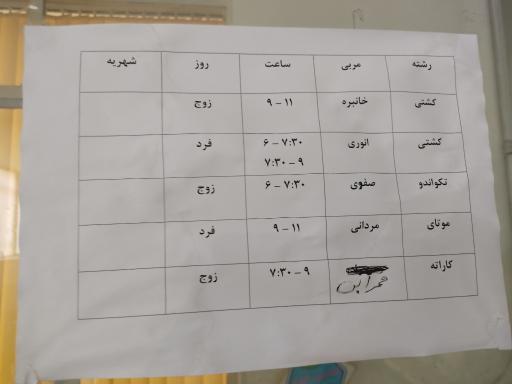 رشته مربی ساعت روز شهریه
کشتی خانبره ۹ – ۱۱ زوج
کشتی انوری ۶ – ۷:۳۰ فرد
۷:۳۰ – ۹
تکواندو صفوی ۶ – ۷:۳۰ زوج
موتای مردانی ۹ – ۱۱ فرد
کاراته ۷:۳۰ – ۹ زوج